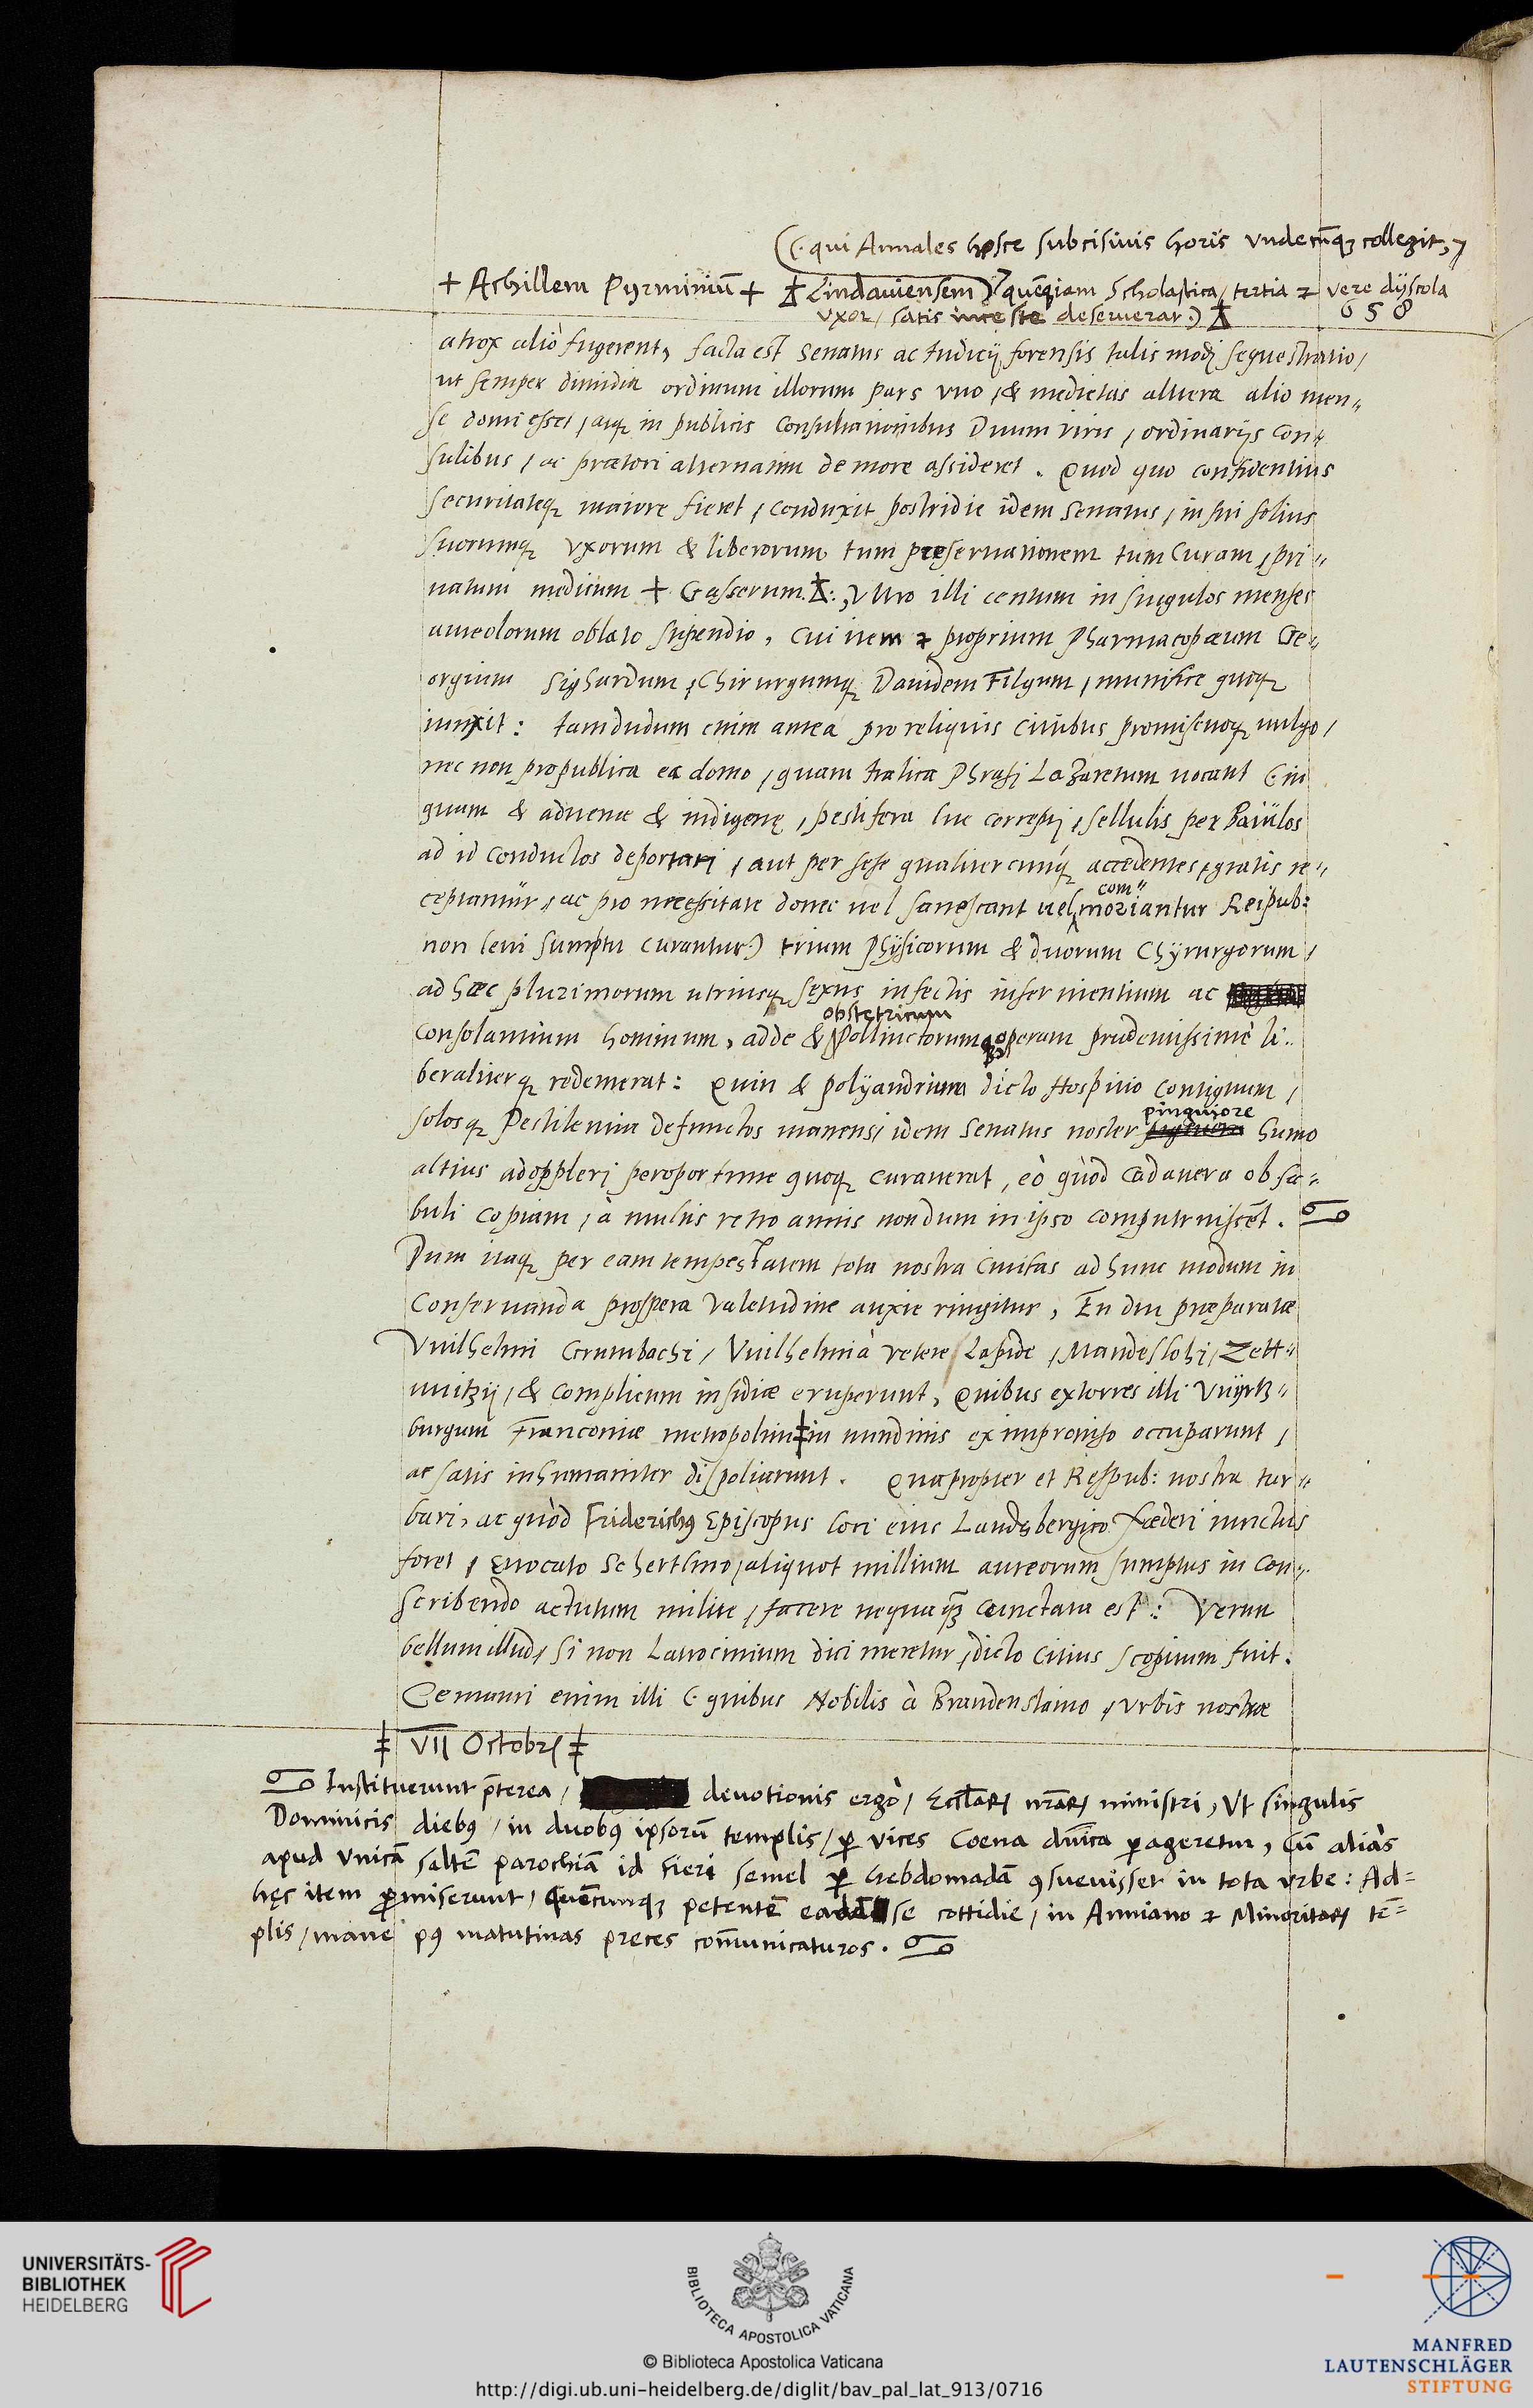 (C. qui Annales hosce subcisivis horis vndecūq; collegit,
+ Achillem Pyrminiū + Lindaviensem) quēq; iam Scholastica, tertia & vere dyscola
658
vxor, satis inceste deseruerat.)
atrox aliò fugerent, facta est Senatus ac Iudicij forensis talis modi sequestratio,
ut semper dimidia ordinum illorum pars vno, & medietas altera alio men„
se domi esset, atq; in publicis consultationibus Duumviris, ordinarijs con„
sulibus, ac prætori alternatim de more assideret. Quod quo confidentius
securitateq; maiore fieret, conduxit postridie idem Senatus, in sui solius
suorumq; vxorum & liberorum tum præseruationem tum curam, pri„
uatum medicum + Gasserum.:, vltro illi centum in singulos menses
aureolorum oblato stipendio, cui item & proprium Pharmacopæum Ge„
orgium Sighardum, Chirurgumq; Dauidem Filgum, munifice quoq;
iunxit: Iamdudum enim antea pro reliquis ciuibus promiscuoq; vulgo,
nec non pro publica ea domo, quam Italica Phrasi Lazaretum uocant (in
quam & aduenæ & indigenę, pestifera lue correpti, sellulis per Baiulos
ad id conductos deportari, aut per sese qualitercunq; accedentes, gratis re„
ceptantur, ac pro necessitate donec uel sanescant uel com„moriantur Reipub:
non leui sumptu curantur) trium Physicorum & duorum Chyrurgorum,
ad hæc plurimorum utriusq; sexus infectis inseruientium ac
consolantium hominum, adde & obstetricum Pollinctorumq; operam prudentissimè li„
beraliterq; redemerat: Quin & polyandrium dicto Hospitio contiguum,
solosq; Pestilentia defunctos manens, idem Senatus noster pinguiore humo
altius adoppleri peroportune quoq; curauerat, eò quòd cadauera ob sa„
buli copiam, à multis retro annis nondum in ipso computruissēt.
Dum itaq; per eam tempestatem tota nostra Ciuitas ad hunc modum in
Conseruanda prospera valetudine anxie ringitur, En diu præparatæ
VVilhelmi Grumbachi, VVilhelmi à vetere Lapide, Mandeslohi, Zett„
uuitzij, & complicum insidiæ eruperunt, Quibus extorres illi VVyrtz„
burgum Franconiæ metropolim ‡ in nundinis ex improuiso occuparunt,
ac satis inhumaniter dispoliarunt. Quapropter et Respub: nostra tur„
bari, ac quòd Friderichus Episcopus loci eius Landsbergico fœderi iunctus
foret, Euocato Schertlino, aliquot millium aureorum sumptus in con„
scribendo actutum milite, facere nequaq̃; cunctata est: Verum
bellum illud, si non Latrocinium dici meretur, dicto citius sopitum fuit.
Germani enim illi (quibus Nobilis à Brandenstaino, vrbis nostræ
‡ VII Octobr; ‡
Instituerunt p̄terea, devotionis ergò, Eccl̄iar; nr̄ar; ministri, Vt singulis
Dominicis diebus, in duobus ipsorū templis, per vices Coena dn̄ica perageretur, Cū aliàs
apud vnicā saltē parochiā id fieri semel per hebdomadā cōsuevisset in tota vrbe: Ad=
hęc item promiserunt, Quēcunq; petentē ea se cottidie, in Anniano & Minoritar; tē=
plis, mane post matutinas preces com̄unicaturos.
UNIVERSITÄTS-
BIBLIOTHEK
HEIDELBERG
BIBLIOTECA APOSTOLICA VATICANA
© Biblioteca Apostolica Vaticana
http://digi.ub.uni-heidelberg.de/diglit/bav_pal_lat_913/0716
MANFRED
LAUTENSCHLÄGER
STIFTUNG